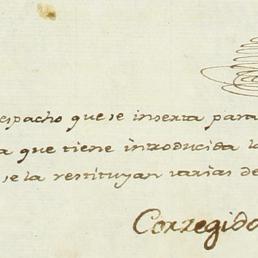 espacho que se inserta para
a que tiene introducida la
se la restituyan varias de
Corregido